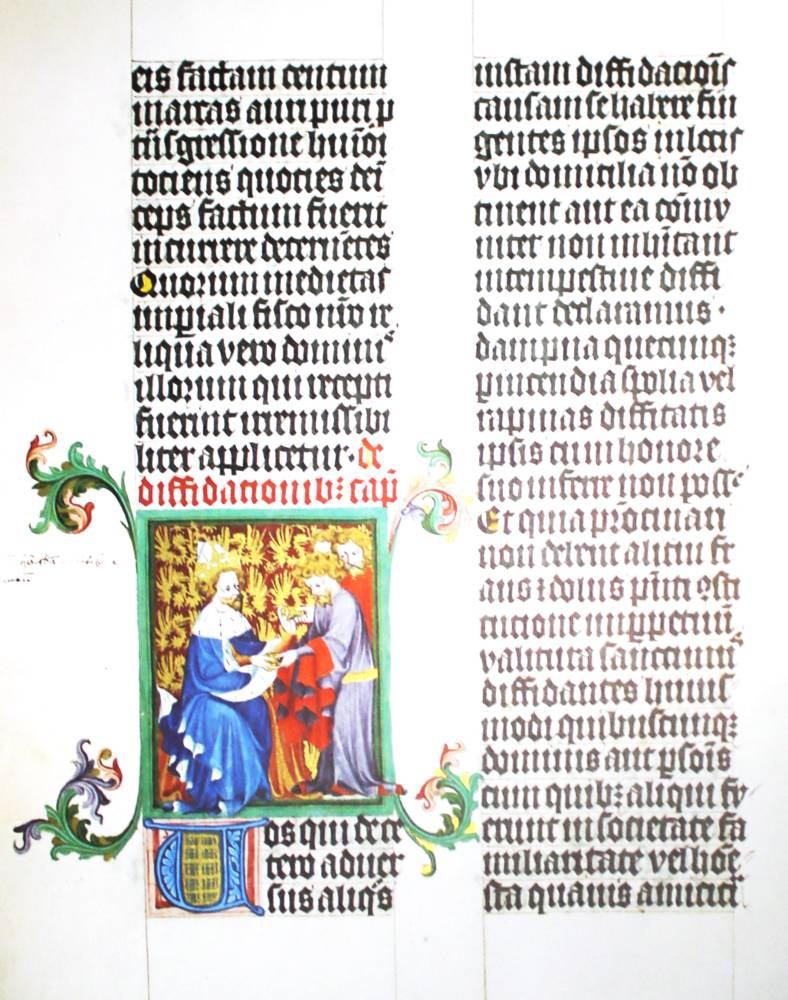 eis factam centum
marcas auri puri p
trāsgressione huiꝰōi
tociens quocies deī
ceps factum fuerit
incurrere decernētes
Quorum medietas
imꝑiali fisco nr̄o re
liqua vero dominis
illorum qui recepti
fuerint irremissibi
liter applicetur · de
diffidacionibꝫ cap̄
Eos qui dece
tero aduer
sus aliq̄s
iustam diffidaciōīs
causam se habere fin
gentes ipsos in locis
vbi domicilia nō ob
tinent aut ea cōmv
niter non inh̄itant
intempestiue diffi
dant declaramus ·
dampna quecumqꝫ
ꝑ incendia spolia vel
rapinas diffidatis
ipsis cum honore
suo inferre non posse
Et quia pr̄ocinari
non debent alicui fr
aus ⁊ dolus p̄nti ꝯsti
tucione imꝑpetuū
valitura sanccimus
diffidaciones huius
modi quibuscumqꝫ
dominis aut ꝑsoīs
cum quibꝫ aliqui fv
erunt in societate fa
miliaritate vel hōe
sta quauis amicici